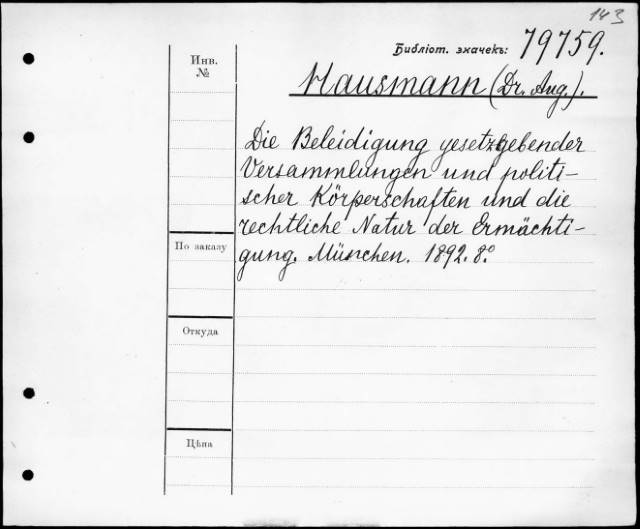 143
Библіот. значекъ: 79759.
Инв.
№
Hausmann (Dr. Aug.).
Die Beleidigung gesetzgebender
Versammlungen und politi-
scher Körperschaften und die
rechtliche Natur der Ermächti-
gung. München. 1892. 8.°
По заказу
Откуда
Цѣна